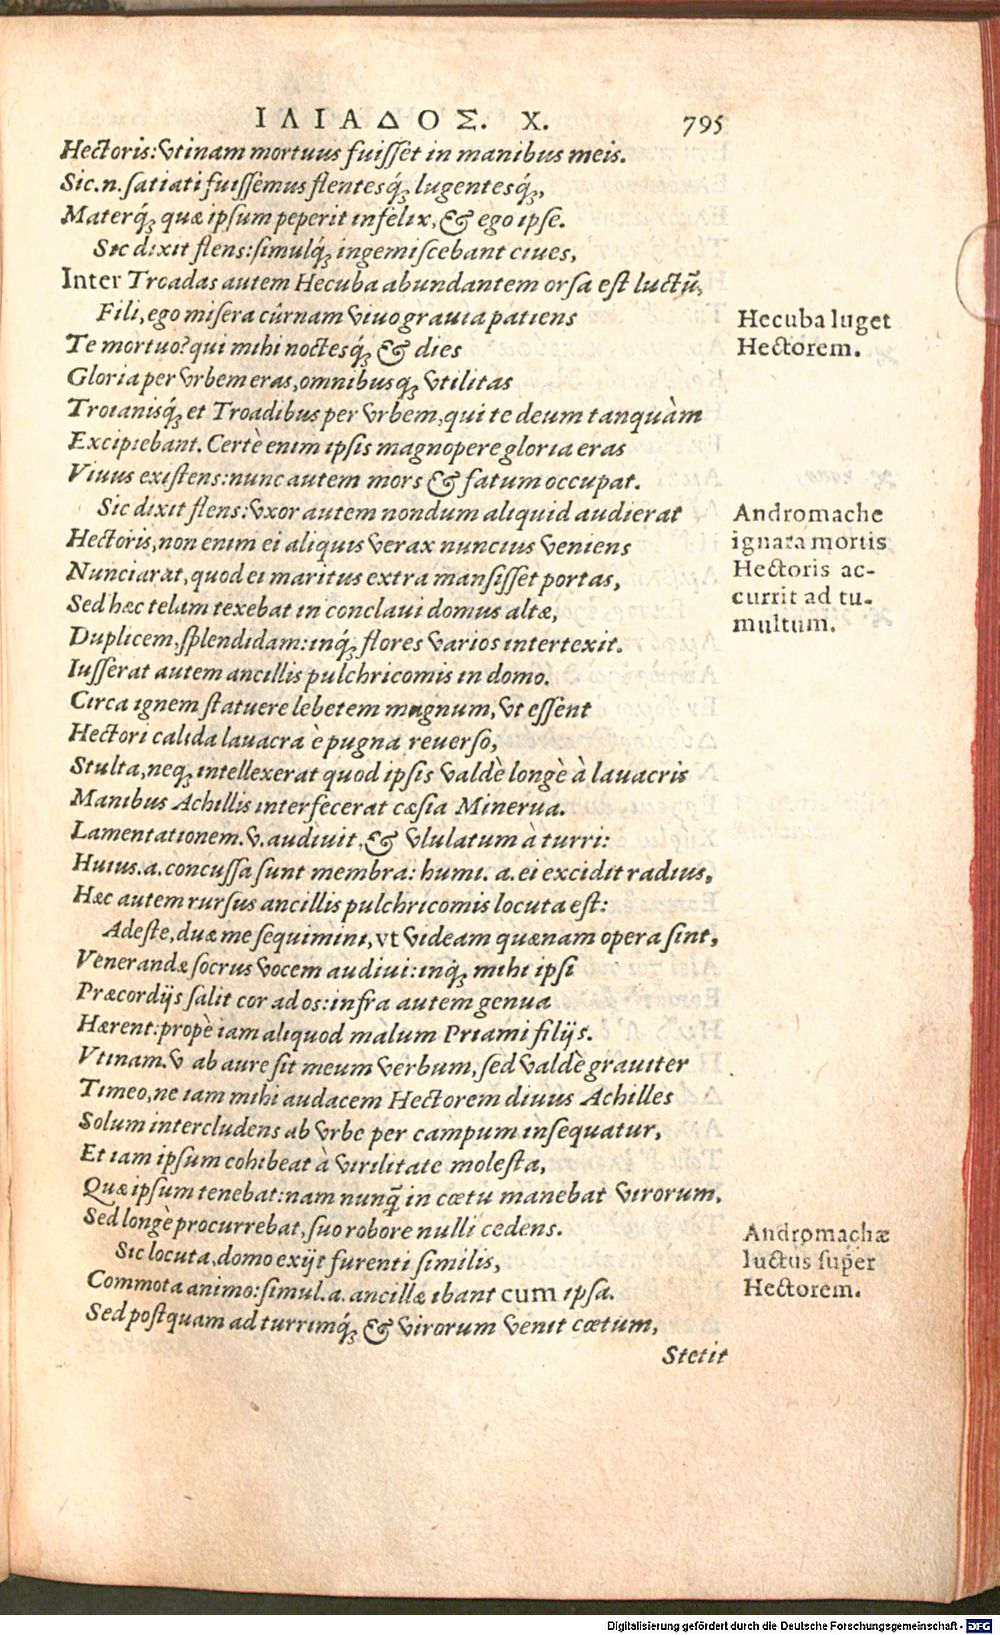 ΙΛΙΑΔΟΣ. Χ. 795
Hectoris: vtinam mortuus fuisset in manibus meis.
Sic.n. satiati fuissemus flentesq́ꝫ lugentesq́ꝫ,
Materq́ꝫ quæ ipsum peperit infelix, & ego ipse.
Sic dixit flens: simulq́ꝫ ingemiscebant ciues,
Inter Troadas autem Hecuba abundantem orsa est luctũ,
Fili, ego misera cûrnam viuo grauia patiens
Te mortuo? qui mihi noctesq́ꝫ & dies
Gloria per vrbem eras, omnibusqꝫ vtilitas
Troianisq́ꝫ et Troadibus per vrbem, qui te deum tanquàm
Excipiebant. Certè enim ipsis magnopere gloria eras
Viuus existens: nunc autem mors & fatum occupat.
Hecuba luget
Hectorem.
Sic dixit flens: vxor autem nondum aliquid audierat
Hectoris, non enim ei aliquis verax nuncius veniens
Nunciarat, quod ei maritus extra mansisset portas,
Sed hæc telam texebat in conclaui domus altæ,
Duplicem, splendidam: inq́ꝫ flores varios intertexit.
Andromache
ignara mortis
Hectoris ac-
currit ad tu-
multum.
Iusserat autem ancillis pulchricomis in domo.
Circa ignem statuere lebetem magnum, vt essent
Hectori calida lauacra è pugna reuerso,
Stulta, neqꝫ intellexerat quod ipsis valdè longè à lauacris
Manibus Achillis interfecerat cæsia Minerua.
Lamentationem.v.audiuit, & vlulatum à turri:
Huius.a.concussa sunt membra: humi.a.ei excidit radius,
Hæc autem rursus ancillis pulchricomis locuta est:
Adeste, duæ me sequimini, vt videam quænam opera sint,
Venerandæ socrus vocem audiui: inq́ꝫ mihi ipsi
Præcordijs salit cor ad os: infra autem genua
Hærent: propè iam aliquod malum Priami filijs.
Vtinam.v ab aure sit meum verbum, sed valdè grauiter
Timeo, ne iam mihi audacem Hectorem diuus Achilles
Solum intercludens ab vrbe per campum insequatur,
Et iam ipsum cohibeat à virilitate molesta,
Quæ ipsum tenebat: nam nunq̃ in cœtu manebat virorum,
Sed longè procurrebat, suo robore nulli cedens.
Sic locuta, domo exijt furenti similis,
Commota animo: simul.a. ancillæ ibant cum ipsa.
Sed postquam ad turrimq́ꝫ & virorum venit cœtum,
Andromachæ
luctus super
Hectorem.
Stetit
Digitalisierung gefördert durch die Deutsche Forschungsgemeinschaft - DFG